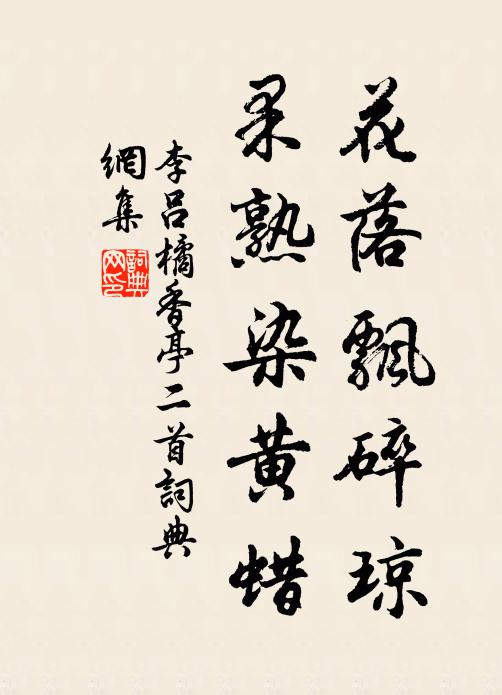 花落飄碎琼
果熟染黄蜡
李呂橘香亭二首詞典
網集
詞典
网印